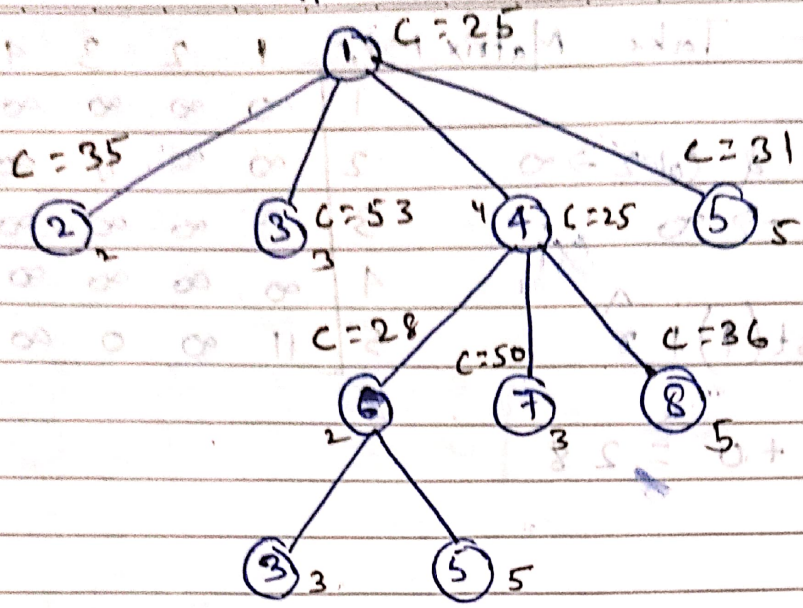 1 C = 25
C = 35
C = 31
2 2
3 C = 53 3
4 4 C = 25
5 5
C = 28
C = 50
C = 36
6 2
7 3
8 5
3 3
5 5